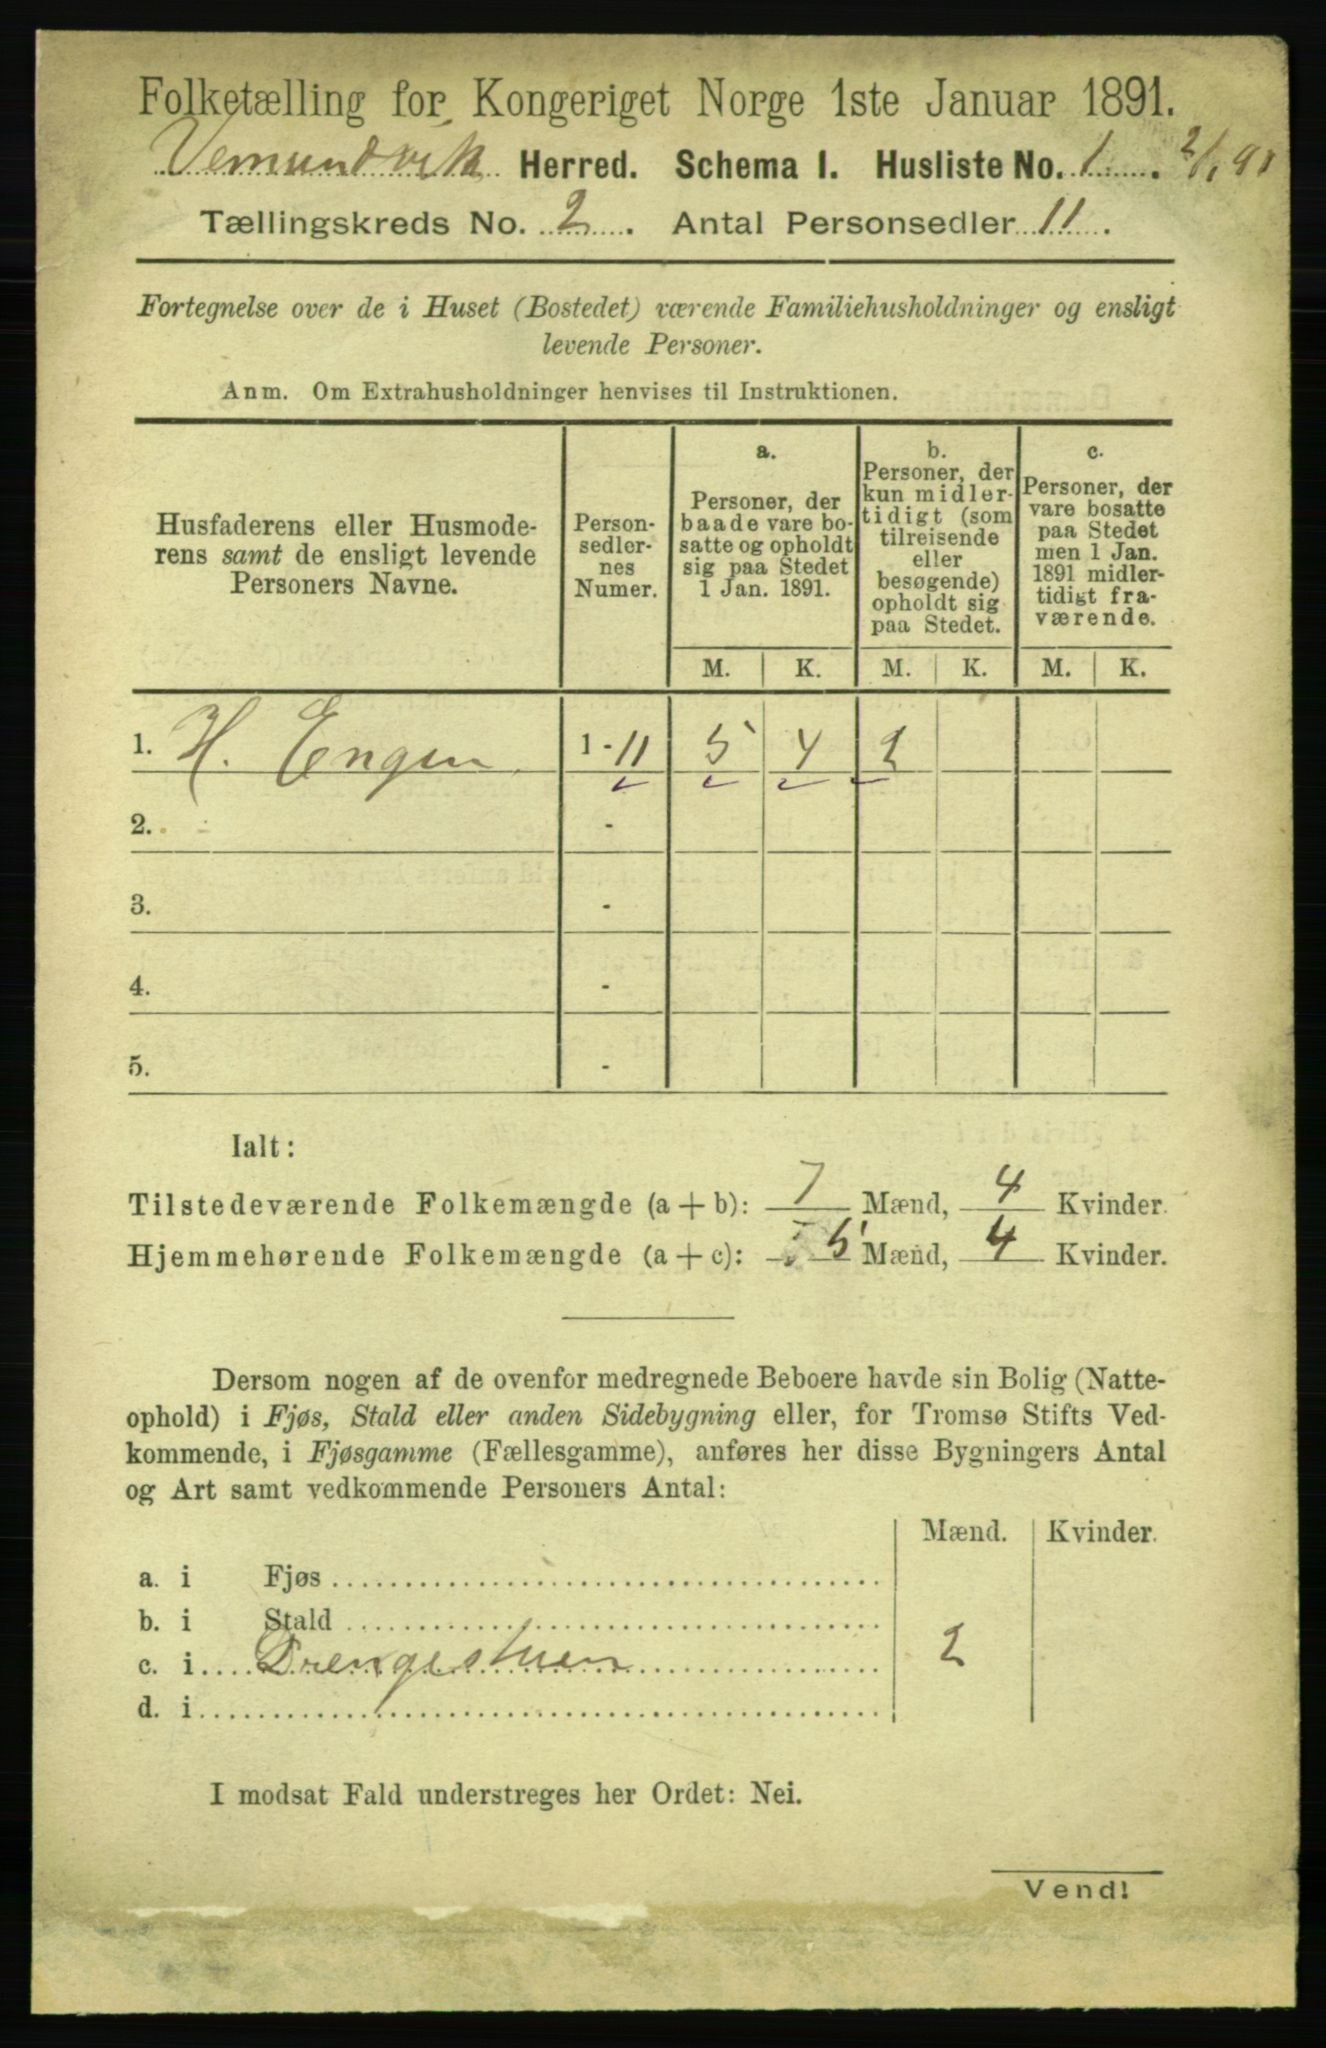 Folketælling for Kongeriget Norge 1ste Januar 1891.
Vemundvik Herred. Schema I. Husliste No. 1. 2/1 91
Tællingskreds No. 2. Antal Personsedler 11.
Fortegnelse over de i Huset (Bostedet) værende Familiehusholdninger og ensligt
levende Personer.
Anm. Om Extrahusholdninger henvises til Instruktionen.
Husfaderens eller Husmode-
rens samt de ensligt levende
Personers Navne.
Person-
sedler-
nes
Numer.
a.
Personer, der
baade vare bo-
satte og opholdt
sig paa Stedet
1 Jan. 1891.
b.
Personer, der
kun midler-
tidigt (som
tilreisende
eller
besøgende)
opholdt sig
paa Stedet.
c.
Personer, der
vare bosatte
paa Stedet
men 1 Jan.
1891 midler-
tidigt fra-
værende.
M. K. M. K. M. K.
1. H. Engen 1 - 11 5 4 2
2. -
3. -
4. -
5. -
Ialt:
Tilstedeværende Folkemængde (a + b): 7 Mænd, 4 Kvinder.
Hjemmehørende Folkemængde (a + c): 5 Mænd, 4 Kvinder.
Dersom nogen af de ovenfor medregnede Beboere havde sin Bolig (Natte-
ophold) i Fjøs, Stald eller anden Sidebygning eller, for Tromsø Stifts Ved-
kommende, i Fjøsgamme (Fællesgamme), anføres her disse Bygningers Antal
og Art samt vedkommende Personers Antal:
Mænd. Kvinder.
a. i Fjøs
b. i Stald
c. i Drengestuen 2
d. i
I modsat Fald understreges her Ordet: Nei.
Vend!